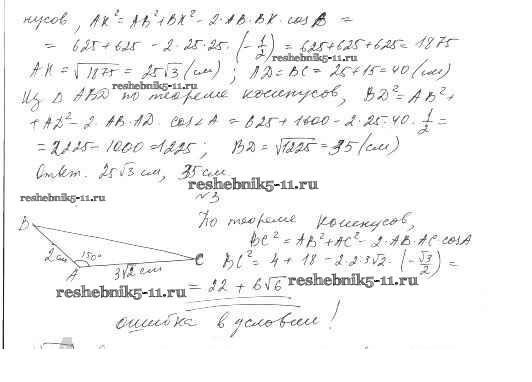 нусов, AK² = AB² + BK² - 2·AB·BK·cos B =
= 625 + 625 - 2·25·25·(-1/2) = 625+625+625 = 1875
reshebnik5-11.ru
AK = √1875 = 25√3 (см); AD = BC = 25+15 = 40 (см)
reshebnik5-11.ru
Из Δ ABD по теореме косинусов, BD² = AB² +
+ AD² - 2·AB·AD·cos∠A = 625 + 1600 - 2·25·40·1/2 =
= 2225 - 1000 = 1225; BD = √1225 = 35 (см)
Ответ. 25√3 см, 35 см.
reshebnik5-11.ru
reshebnik5-11.ru
N3
B
2 см
A
150°
3√2 см
C
По теореме косинусов,
BC² = AB² + AC² - 2·AB·AC·cos A
BC² = 4 + 18 - 2·2·3√2·(-√3/2) =
reshebnik5-11.ru
reshebnik5-11.ru
= 22 + 6√6
ошибка в условии!